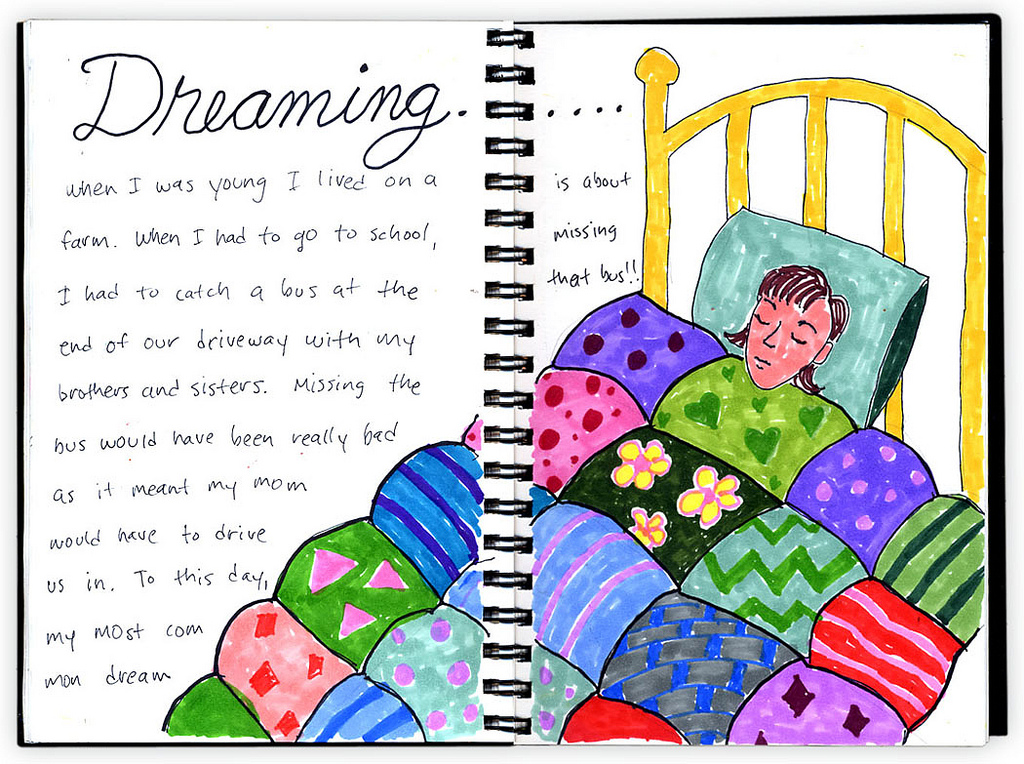 Dreaming.......
when I was young I lived on a
farm. When I had to go to school,
I had to catch a bus at the
end of our driveway with my
brothers and sisters. Missing the
bus would have been really bad
as it meant my mom
would have to drive
us in. To this day,
my most com
mon dream
is about
missing
that bus!!